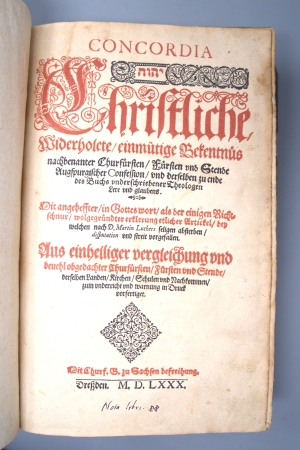 CONCORDIA
יהוה
Christliche,
Widerholete/ einmütige Bekentnüs
nachbenanter Churfürsten/ Fürsten und Stende
Augspurgischer Confession/ und derselben zu ende
des Buchs underschriebener Theologen
Lere und glaubens.
Mit angeheffter/ in Gottes wort/ als der einigen Richt-
schnur/ wolgegründter erklerung etlicher Artickel/ bey
welchen nach D. Martin Luthers seligen absterben/
disputation und streit vorgefallen.
Aus einhelliger vergleichung und
bevehl obgedachter Churfürsten/ Fürsten und Stende/
derselben Landen/ Kirchen/ Schulen und Nachkommen/
zum underricht und warnung in Druck
vorfertiget.
Mit Churf. G. zu Sachsen befreihung.
Dreßden. M. D. LXXX.